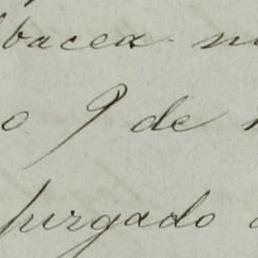 bacea
o 9 de
jurgado